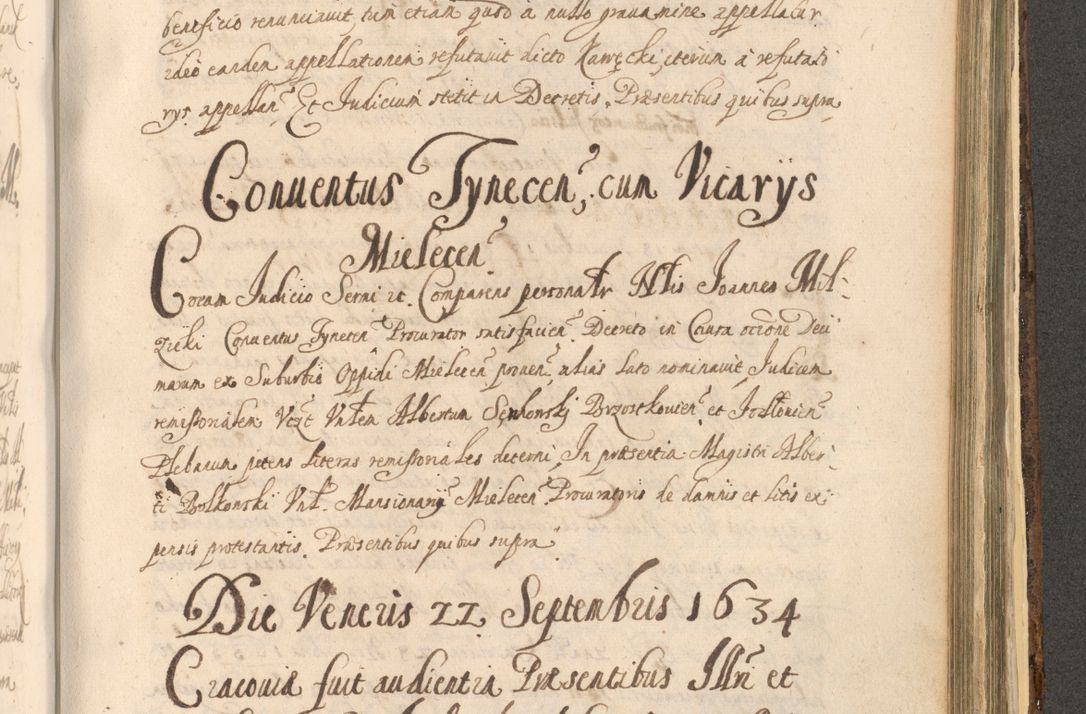 beneficio renunciauit, tum etiam quod a nullo grauamine appellatur
ideo eandem appellationem refutauit dicto Kawęcki, iterum a refutato
rys appellan. Et Iudicium stetit in Decretis, Præsentibus quibus supra
Conuentus Tynecen. cum Vicarijs
Mielecen.
Coram Iudicio Semi et. Comparens personalr Nblis Joannes Mil-
Conuentus Tynecen. Procurator satisfacien. Decreto in Causa occone Deci
marum ex Suburbio Oppidi Mielecen prouen. alias Lato nominauit Iudicem
remissorialem Vnblem Albertum Brzostkouien. et
Plebanum petens literas remissoriales decerni, In præsentia Magistri Alber-
ti Bolkonski Vnbl. Mansionarij Mielecen. Procuratoris de damnis et litis ex-
pensis protestantis. Præsentibus quibus supra
Die Veneris 22 Septembris 1634
Cracouiæ fuit audientia Præsentibus Illri et